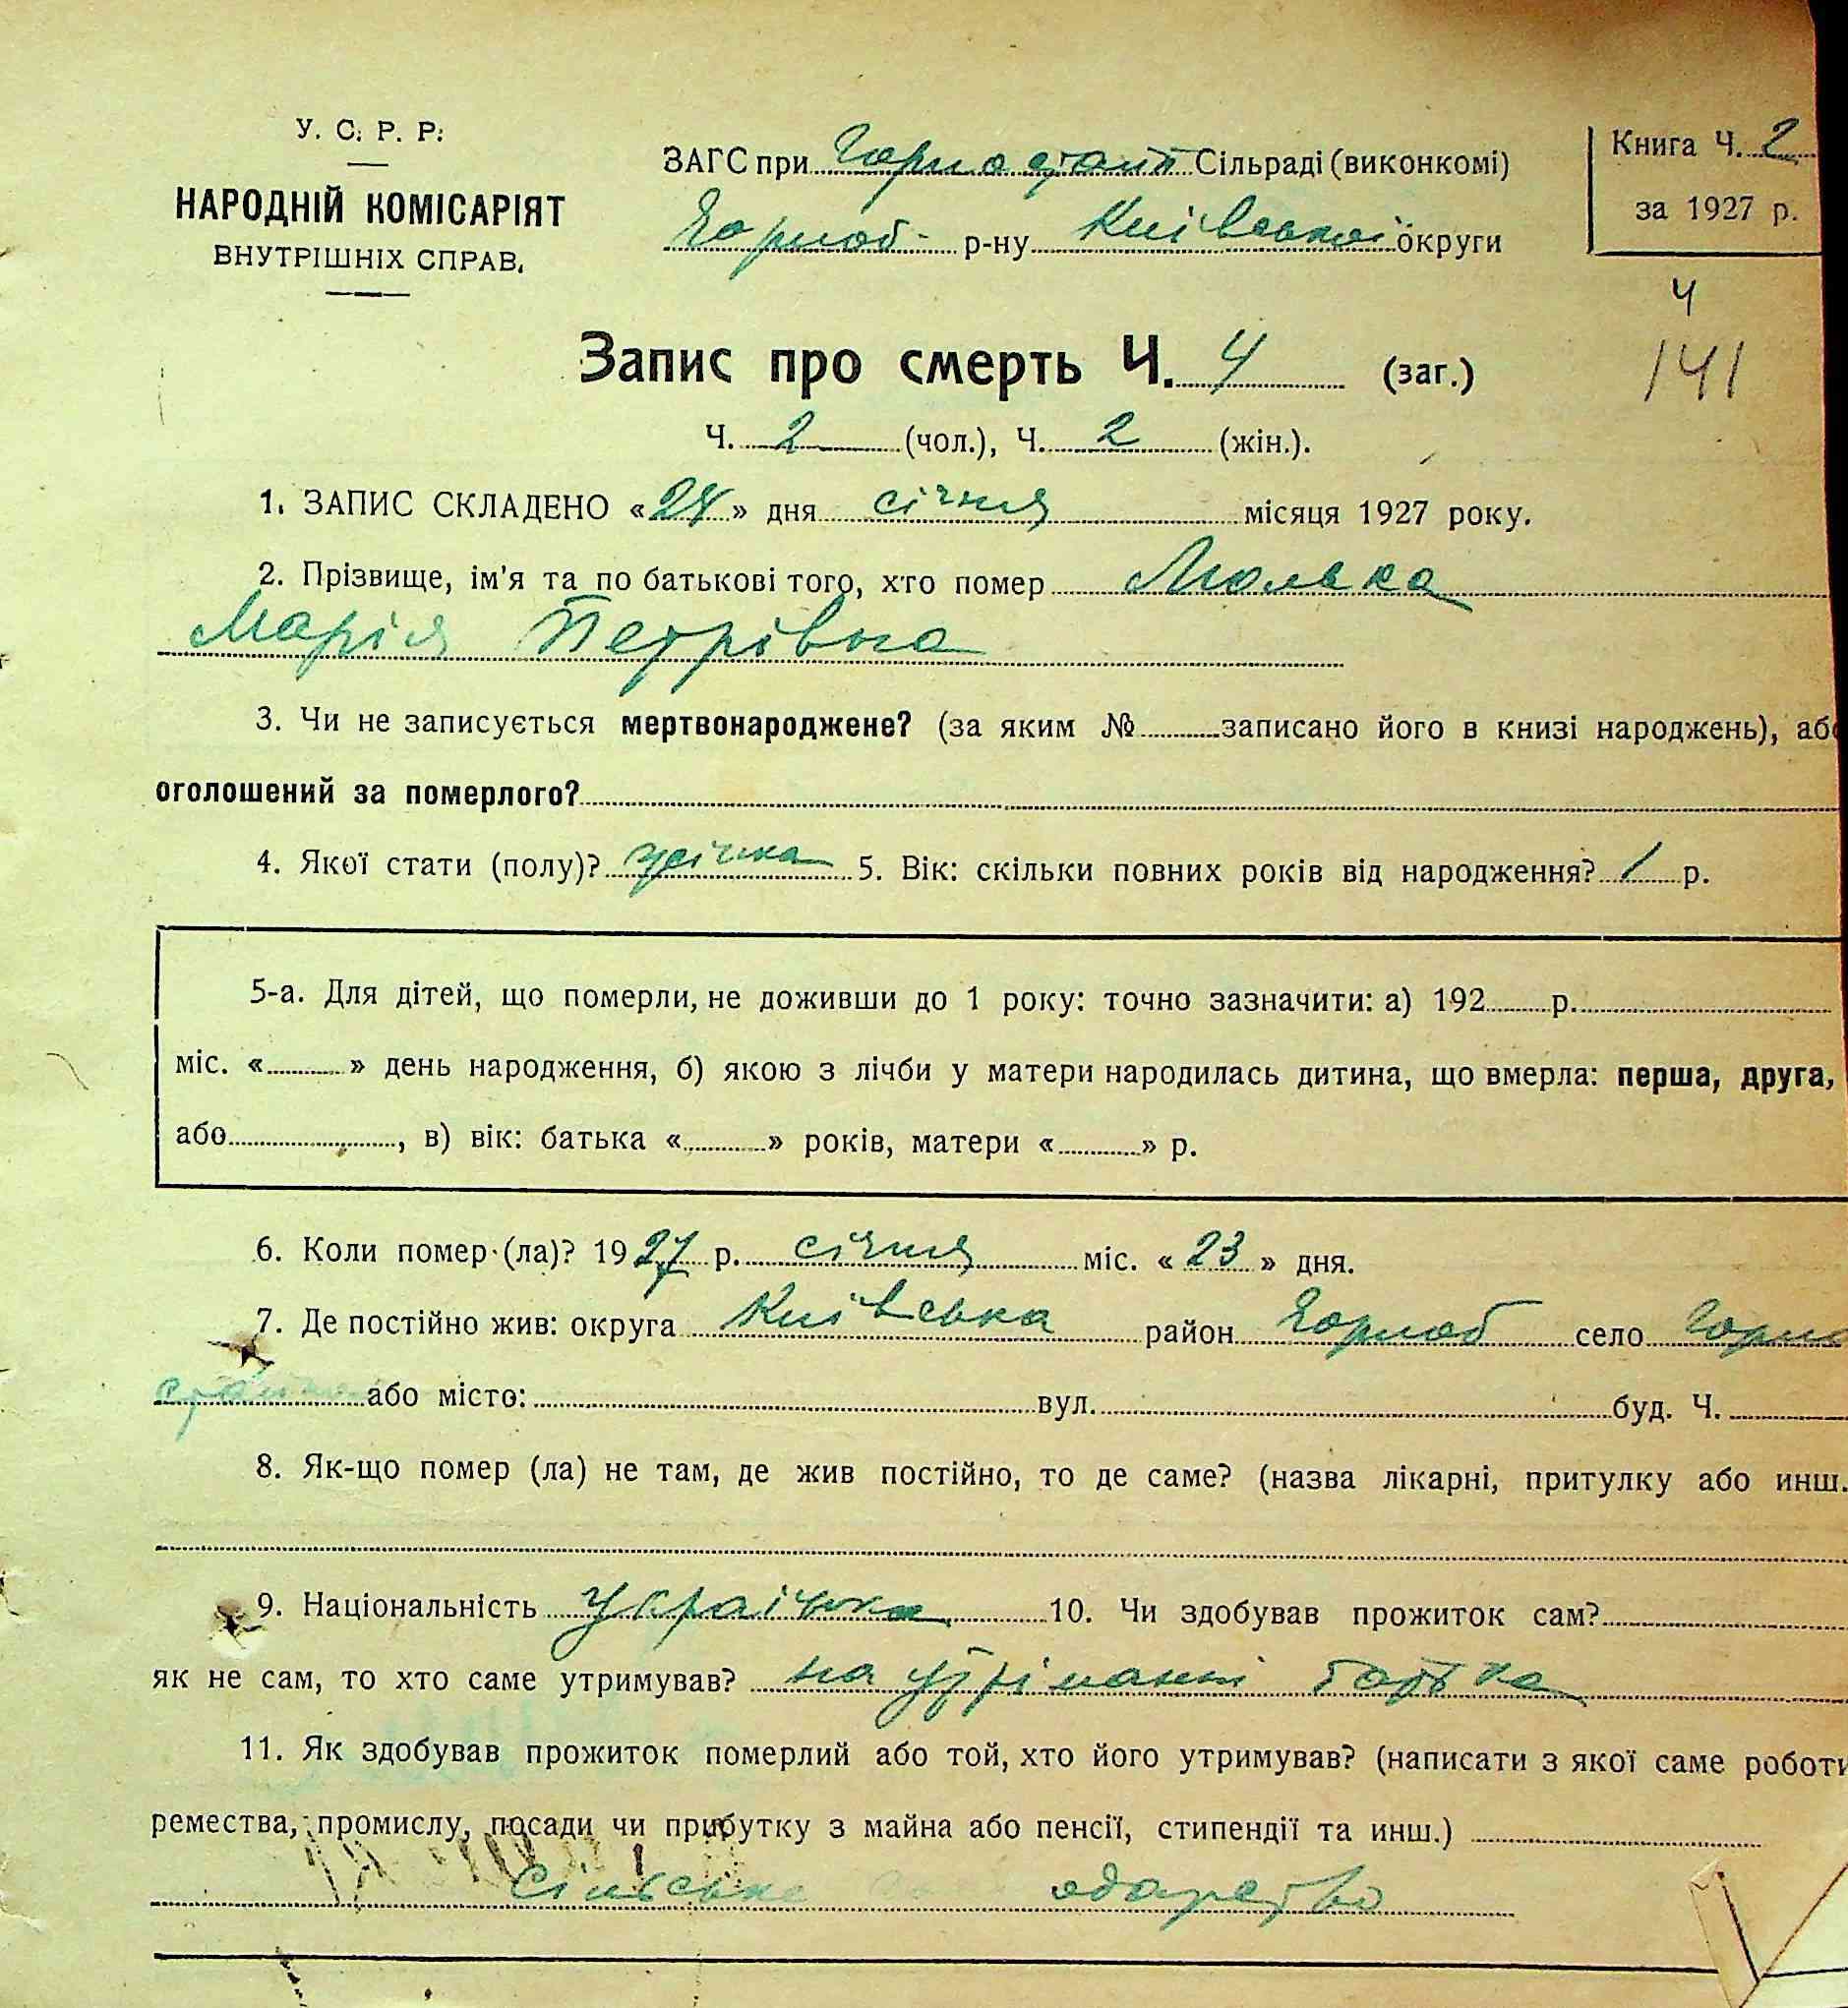 У. С. Р. Р.
НАРОДНІЙ КОМІСАРІЯТ
ВНУТРІШНІХ СПРАВ.
ЗАГС при Горностайп Сільраді (виконкомі)
Горност р-ну Київської округи
Книга Ч. 2
за 1927 р.
4
141
Запис про смерть Ч. 4 (заг.)
Ч. 2 (чол.), Ч. 2 (жін.).
1. ЗАПИС СКЛАДЕНО «24» дня січня місяця 1927 року.
2. Прізвище, ім'я та по батькові того, хто помер Люлька
Марія Петрівна
3. Чи не записується мертвонароджене? (за яким № записано його в книзі народжень), або
оголошений за померлого?
4. Якої стати (полу)? жінка 5. Вік: скільки повних років від народження? 1 р.
5-а. Для дітей, що померли, не доживши до 1 року: точно зазначити: а) 192 р.
міс. « » день народження, б) якою з лічби у матери народилась дитина, що вмерла: перша, друга,
або , в) вік: батька « » років, матери « » р.
6. Коли помер (ла)? 1927 р. січня міс. «23» дня.
7. Де постійно жив: округа Київська район село Горно
або місто: вул. буд. Ч.
8. Як-що помер (ла) не там, де жив постійно, то де саме? (назва лікарні, притулку або инш.
9. Національність Українка 10. Чи здобував прожиток сам?
як не сам, то хто саме утримував? на утріманні батька
11. Як здобував прожиток померлий або той, хто його утримував? (написати з якої саме роботи
ремества, промислу, посади чи прибутку з майна або пенсії, стипендії та инш.)
Сільське одарство